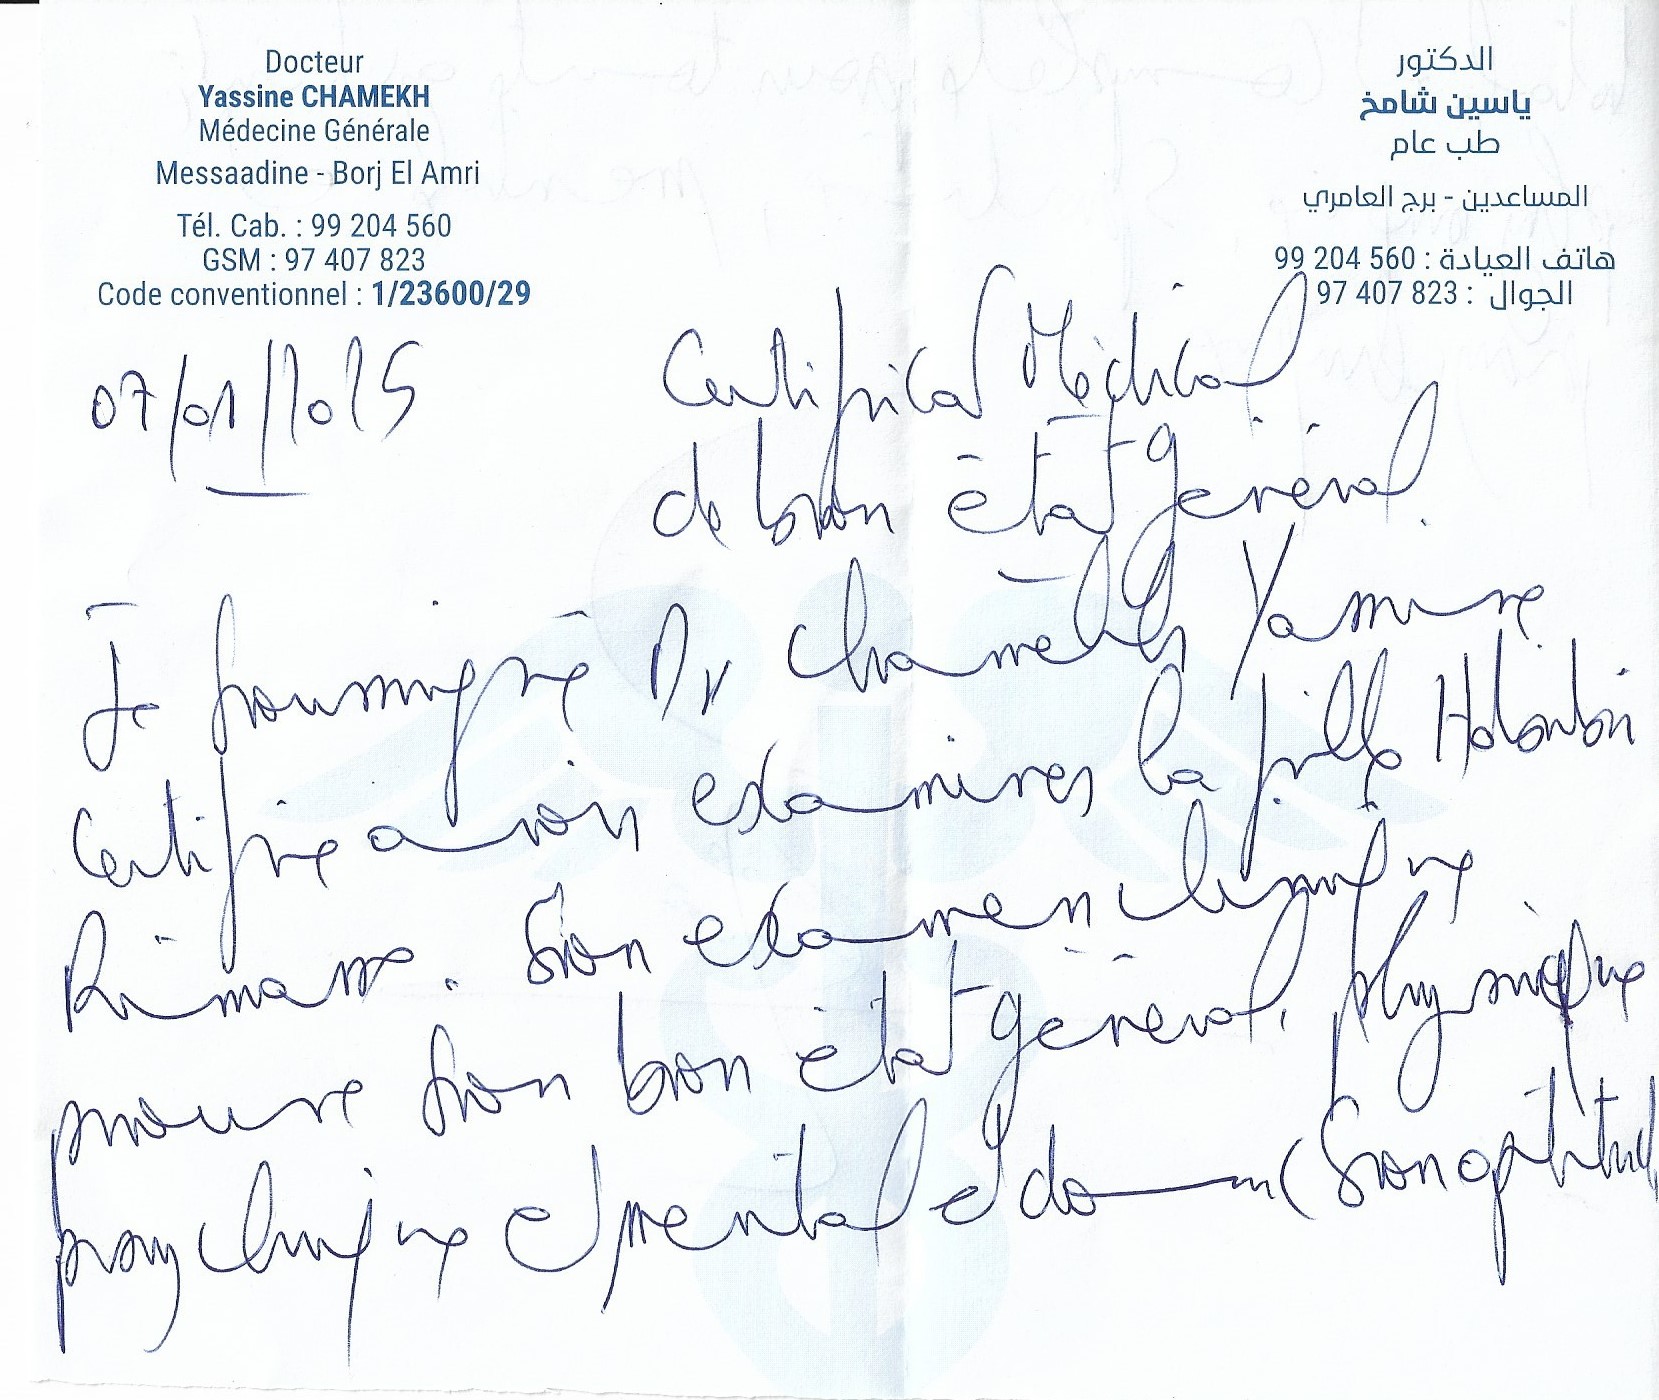 Docteur
Yassine CHAMEKH
Médecine Générale
Messaadine - Borj El Amri
Tél. Cab. : 99 204 560
GSM : 97 407 823
Code conventionnel : 1/23600/29
الدكتور
ياسين شامخ
طب عام
المساعدين - برج العامري
هاتف العيادة : 560 204 99
الجوال : 823 407 97
07/01/2025
Certificat Médical
de bon état général.
Je soussigné Dr Chamekh Yassine
certifie avoir examiner la fille
. Son examen clinique
prouve son bon état général, physique
psychique et mental et donc son aptitude